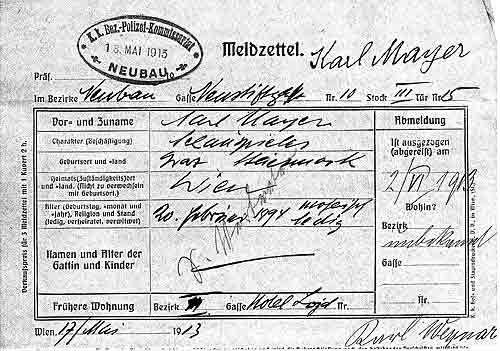 K.k. Bez.-Polizei-Kommissariat
18. MAI 1913
NEUBAU
Meldzettel.
Karl Mayer
Präf.
Im Bezirke Neubau Gasse Neustiftgasse Nr. 10 Stock III Tür Nr. 15
Vor- und Zuname Karl Mayer
Abmeldung
Charakter (Beschäftigung)
Ist ausgezogen
(abgereist) am
Geburtsort und -land Graz Steiermark
2/VI 1913
Heimats(Zuständigkeits)ort
und -land. (Nicht zu verwechseln
mit Geburtsort.)
Wien
Wohin?
Alter (Geburtstag, -monat und
-jahr), Religion und Stand
(ledig, verheiratet, verwitwet)
20. Februar 1894 mosaisch
ledig
Bezirk
unbekannt
Namen und Alter der
Gattin und Kinder
Gasse
Nr.
Frühere Wohnung Bezirk Gasse Hotel Nr.
Wien, 17/Mai 1913
Karl
Verkaufspreis für 3 Meldzettel mit 1 Kuvert 2 h.